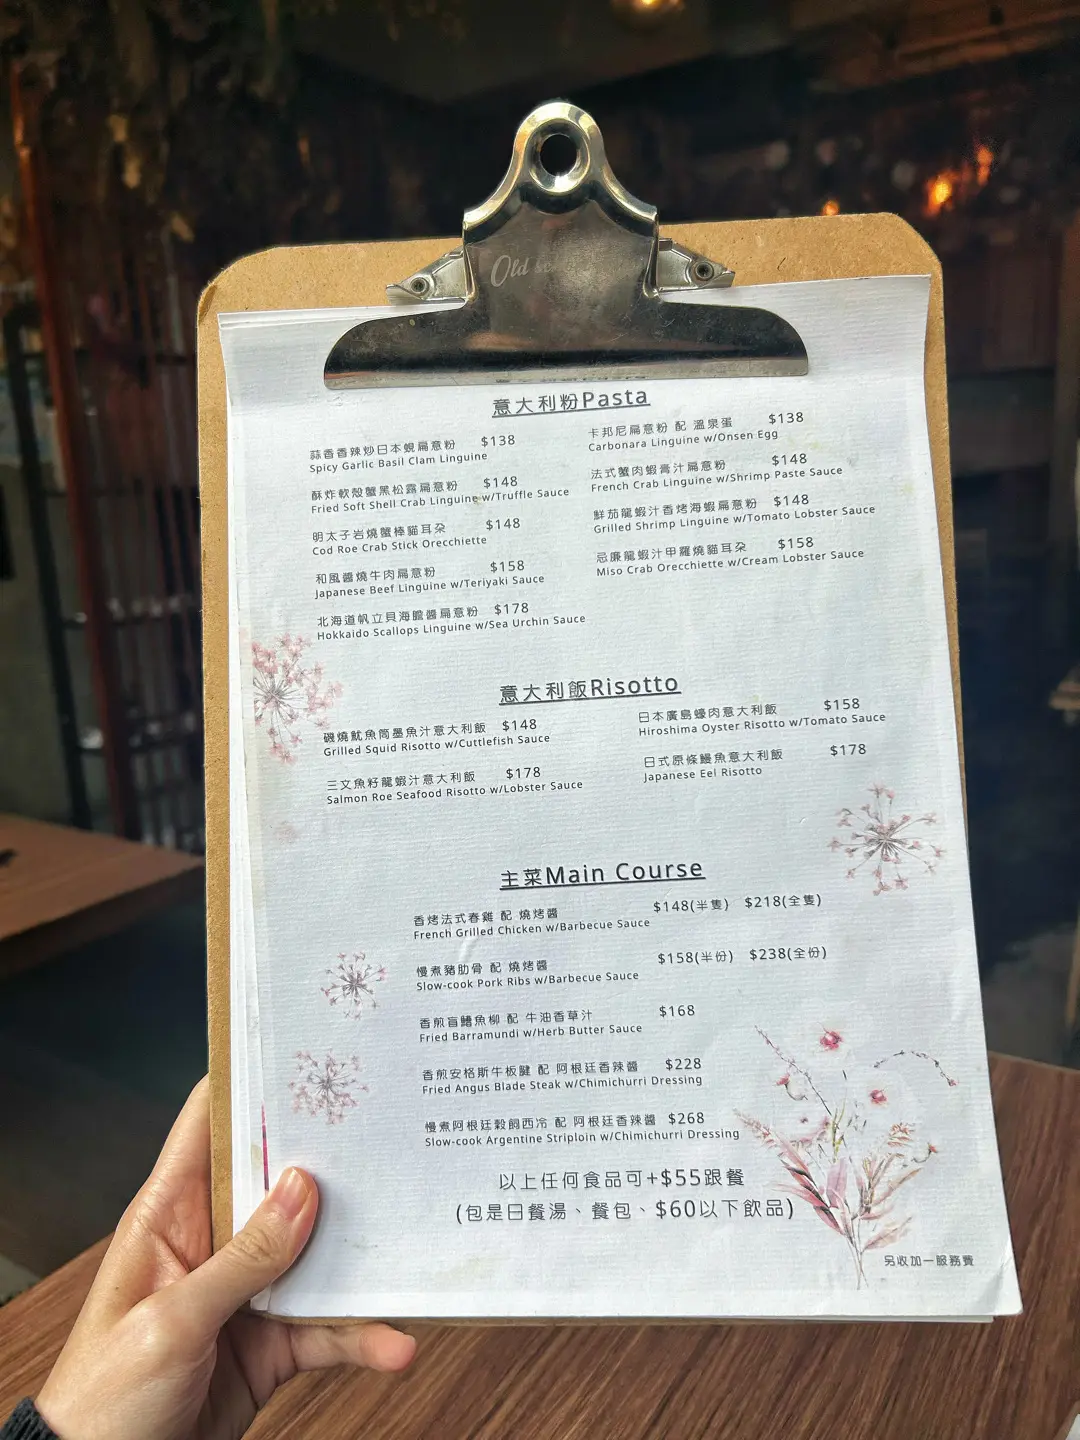 Old
意大利粉Pasta
蒜香香辣炒日本蜆扁意粉 $138
Spicy Garlic Basil Clam Linguine
酥炸軟殼蟹黑松露扁意粉 $148
Fried Soft Shell Crab Linguine w/Truffle Sauce
明太子岩燒蟹棒貓耳朶 $148
Cod Roe Crab Stick Orecchiette
和風醬燒牛肉扁意粉 $158
Japanese Beef Linguine w/Teriyaki Sauce
北海道帆立貝海膽醬扁意粉 $178
Hokkaido Scallops Linguine w/Sea Urchin Sauce
卡邦尼扁意粉 配 溫泉蛋 $138
Carbonara Linguine w/Onsen Egg
法式蟹肉蝦膏汁扁意粉 $148
French Crab Linguine w/Shrimp Paste Sauce
鮮茄龍蝦汁香烤海蝦扁意粉 $148
Grilled Shrimp Linguine w/Tomato Lobster Sauce
忌廉龍蝦汁甲羅燒貓耳朶 $158
Miso Crab Orecchiette w/Cream Lobster Sauce
意大利飯Risotto
磯燒魷魚筒墨魚汁意大利飯 $148
Grilled Squid Risotto w/Cuttlefish Sauce
三文魚籽龍蝦汁意大利飯 $178
Salmon Roe Seafood Risotto w/Lobster Sauce
日本廣島蠔肉意大利飯 $158
Hiroshima Oyster Risotto w/Tomato Sauce
日式原條鰻魚意大利飯 $178
Japanese Eel Risotto
主菜Main Course
香烤法式春雞 配 燒烤醬 $148(半隻) $218(全隻)
French Grilled Chicken w/Barbecue Sauce
慢煮豬肋骨 配 燒烤醬 $158(半份) $238(全份)
Slow-cook Pork Ribs w/Barbecue Sauce
香煎盲鰽魚柳 配 牛油香草汁 $168
Fried Barramundi w/Herb Butter Sauce
香煎安格斯牛板腱 配 阿根廷香辣醬 $228
Fried Angus Blade Steak w/Chimichurri Dressing
慢煮阿根廷穀飼西冷 配 阿根廷香辣醬 $268
Slow-cook Argentine Striploin w/Chimichurri Dressing
以上任何食品可+$55跟餐
(包是日餐湯、餐包、$60以下飲品)
另收加一服務費